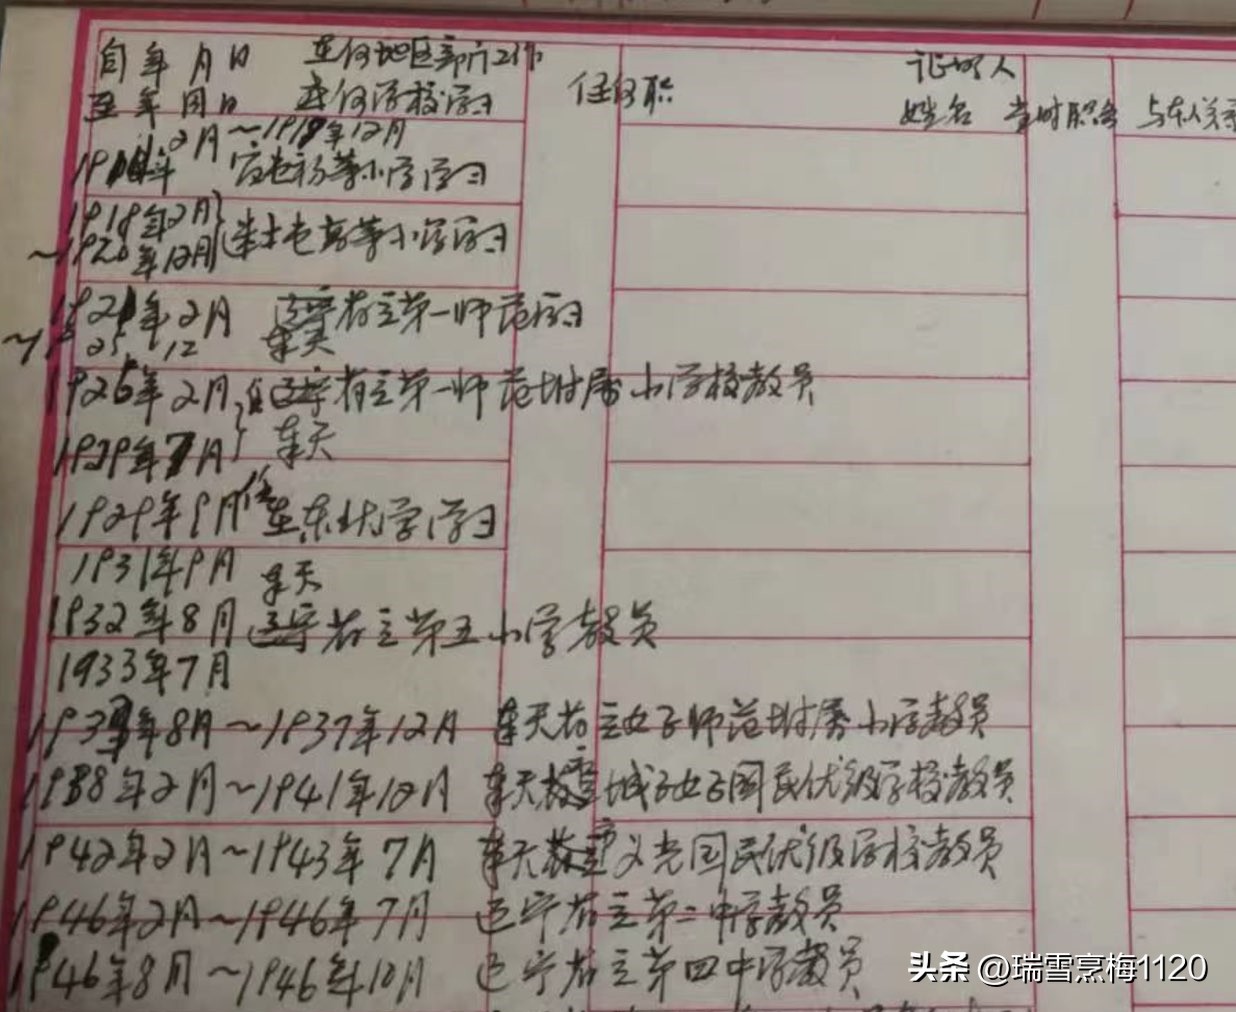 自年月日 在何地区部门工作 任何职 证明人
至年月日 在何学校学习 姓名 当时职务 与本人关系
2月～1918年12月
初等小学学习
1918年2月
～1920年12月 高等小学学习
1921年2月 辽宁省立第一师范学习
～ 25 12 奉天
1926年2月 任辽宁省立第一师范附属小学校教员
1929年7月 奉天
1929年9月 在东北大学学习
1931年9月 奉天
1932年8月 辽宁省立第五小学教员
1933年7月
1933年8月～1937年12月 奉天省立女子师范附属小学教员
1938年2月～1941年12月 奉天 城子女子国民优级学校教员
1942年2月～1943年7月 奉天 义光国民优级学校教员
1946年2月～1946年7月 辽宁省立第二中学教员
1946年8月～1946年10月 辽宁省立第四中学教员
头条 @瑞雪烹梅1120